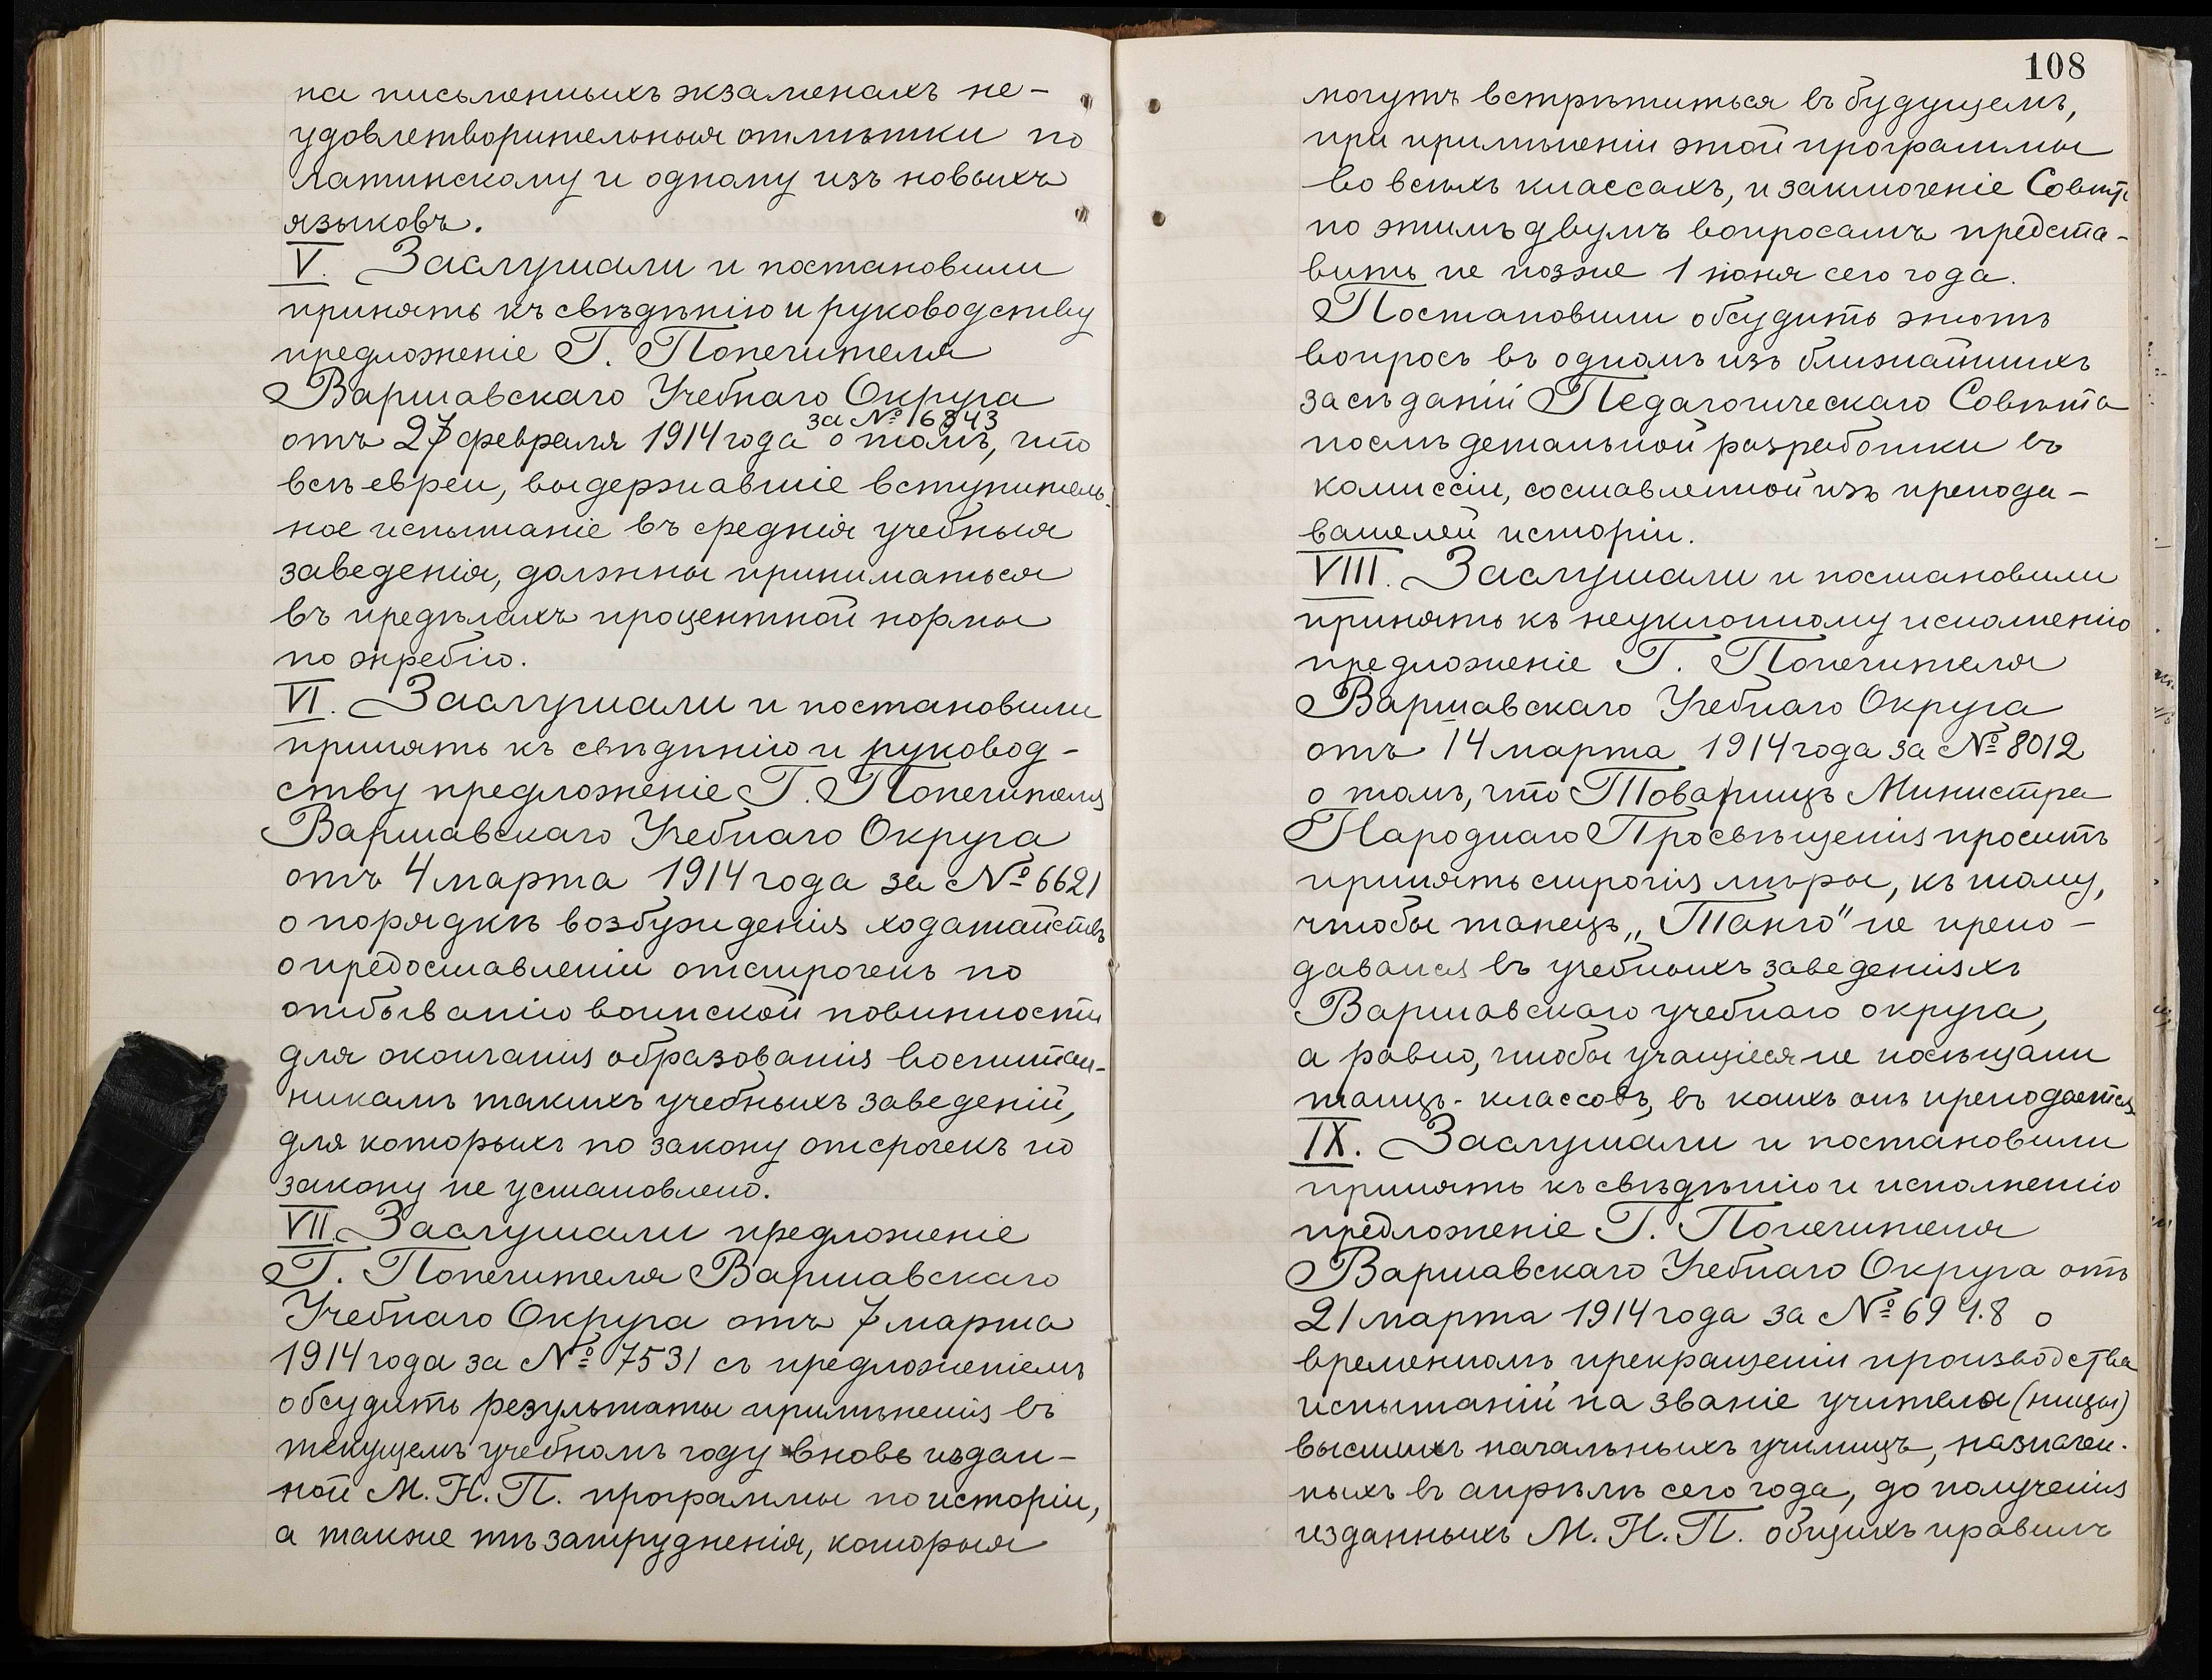 на письменныхъ экзаменахъ не-
удовлетворительныя отмѣтки по
латинскому и одному изъ новыхъ
языковъ.
V. Заслушали и постановили
принять къ свѣдѣнію и руководству
предложеніе Г. Попечителя
Варшавскаго Учебнаго Округа
за № 16343
отъ 27 февраля 1914 года о томъ, что
всѣ евреи, выдержавшіе вступитель-
ное испытаніе въ среднія учебныя
заведенія, должны приниматься
въ предѣлахъ процентной нормы
по жребію.
VI. Заслушали и постановили
принять къ свѣдѣнію и руковод-
ству предложеніе Г. Попечителя
Варшавскаго Учебнаго Округа
отъ 4 марта 1914 года за № 6621
о порядкѣ возбужденія ходатайствъ
о предоставленіи отсрочекъ по
отбыванію воинской повинности
для окончанія образованія воспитан-
никамъ такихъ учебныхъ заведеній,
для которыхъ по закону отсрочекъ по
закону не установлено.
VII. Заслушали предложеніе
Г. Попечителя Варшавскаго
Учебнаго Округа отъ 7 марта
1914 года за № 7531 съ предложеніемъ
обсудить результаты примѣненія въ
текущемъ учебномъ году вновь издан-
ной М. Н. П. программы по исторіи,
а также тѣ затрудненія, которыя
108
могутъ встрѣтиться въ будущемъ,
при примѣненіи этой программы
во всѣхъ классахъ, и заключеніе Совѣта
по этимъ двумъ вопросамъ предста-
вить не позже 1 іюня сего года.
Постановили обсудить этотъ
вопросъ въ одномъ изъ ближайшихъ
засѣданій Педагогическаго Совѣта
послѣ детальной разработки въ
комиссіи, составленной изъ препода-
вателей исторіи.
VIII. Заслушали и постановили
принять къ неуклонному исполненію
предложеніе Г. Попечителя
Варшавскаго Учебнаго Округа
отъ 14 марта 1914 года за № 8012
о томъ, что Товарищъ Министра
Народнаго Просвѣщенія проситъ
принять строгія мѣры, къ тому,
чтобы танецъ „Танго" не препо-
давался въ учебныхъ заведеніяхъ
Варшавскаго учебнаго округа,
а равно, чтобы учащіеся не посѣщали
танцъ-классовъ, въ коихъ онъ преподается
IX. Заслушали и постановили
принять къ свѣдѣнію и исполненію
предложеніе Г. Попечителя
Варшавскаго Учебнаго Округа отъ
21 марта 1914 года за № 6948 о
временномъ прекращеніи производства
испытаній на званіе учителя (ницы)
высшихъ начальныхъ училищъ, назначен-
ныхъ въ апрѣлѣ сего года, до полученія
изданныхъ М. Н. П. общихъ правилъ